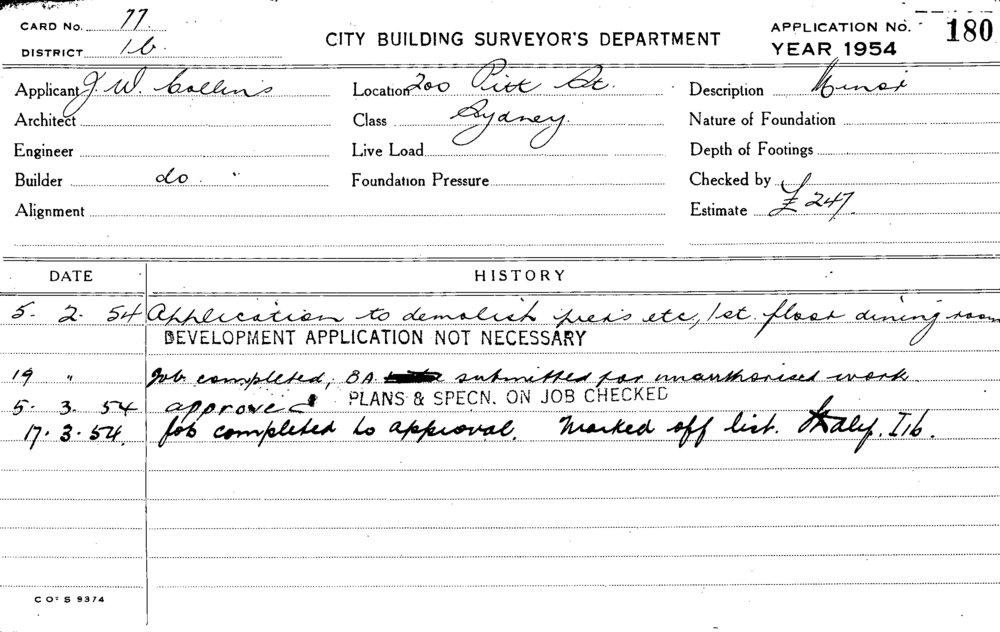 CARD No. 77
DISTRICT 1b.
CITY BUILDING SURVEYOR'S DEPARTMENT
APPLICATION No. 180
YEAR 1954
Applicant J. W. Collins
Location 200 Pitt St.
Description Minor
Architect
Class Sydney.
Nature of Foundation
Engineer
Live Load
Depth of Footings
Builder do "
Foundation Pressure
Checked by
Alignment
Estimate £ 247
DATE HISTORY
5. 2. 54 Application to demolish piers etc, 1st. floor dining room
DEVELOPMENT APPLICATION NOT NECESSARY
19 " Job completed, BA submitted for unauthorised work.
5. 3. 54 approved PLANS & SPECN. ON JOB CHECKED
17. 3. 54. Job completed to approval. Marked off list. Daly. I1b.
C OF S 9374